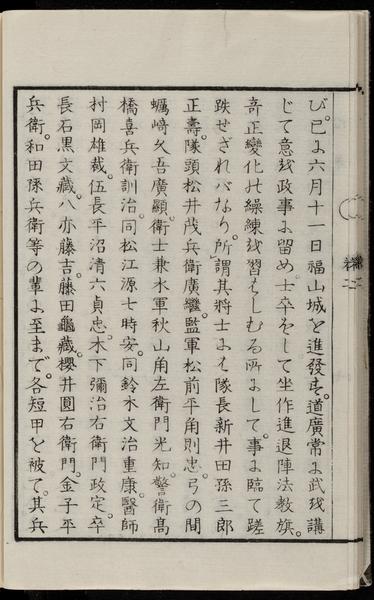 び。已に六月十一日福山城を進發す。道廣常に武を講
じて意を政事に留め。士卒をして坐作進退陣法教旗。
奇正變化の繰練を習はしむる所にして。事に臨て蹉
跌せざればなり。所謂其將士には隊長新井田孫三郎
正壽。隊頭松井茂兵衛廣繼。監軍松前平角則忠。弓の間
蠣﨑久吾廣顯。衛士兼水軍秋山角左衛門光知。警衛高
橋喜兵衛訓治。同松江源七時安。同鈴木文治重康。醫師
村岡雄裁。伍長平沼清六貞忠。木下彌治右衛門政定。卒
長石黒文藏。八亦藤吉。藤田龜藏。櫻井圓右衛門。金子平
兵衛。和田隊兵衛等の輩に至まで。各短甲を被て。其兵